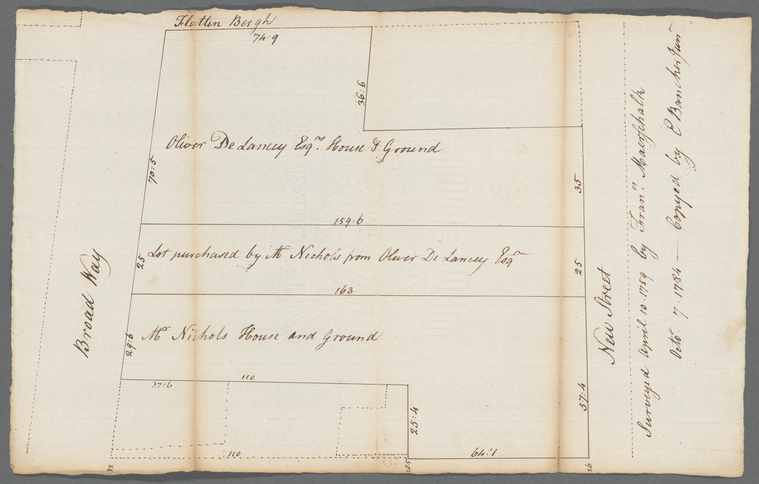 Flatten Bergh
74:9
36:6
Oliver De Lancey Esqrs House & Ground
70:5
35
159:6
25
Lot purchased by Mr Nichols from Oliver De Lancey Esqr
25
163
Broad Way
29:6
Mr Nichols House and Ground
57:4
37:6
110
25:4
110
64:1
New Street
Surveyed April 10 1759 by Frans Maerschalk
Octo 7 1784 — Copyed by E Bancker Junr